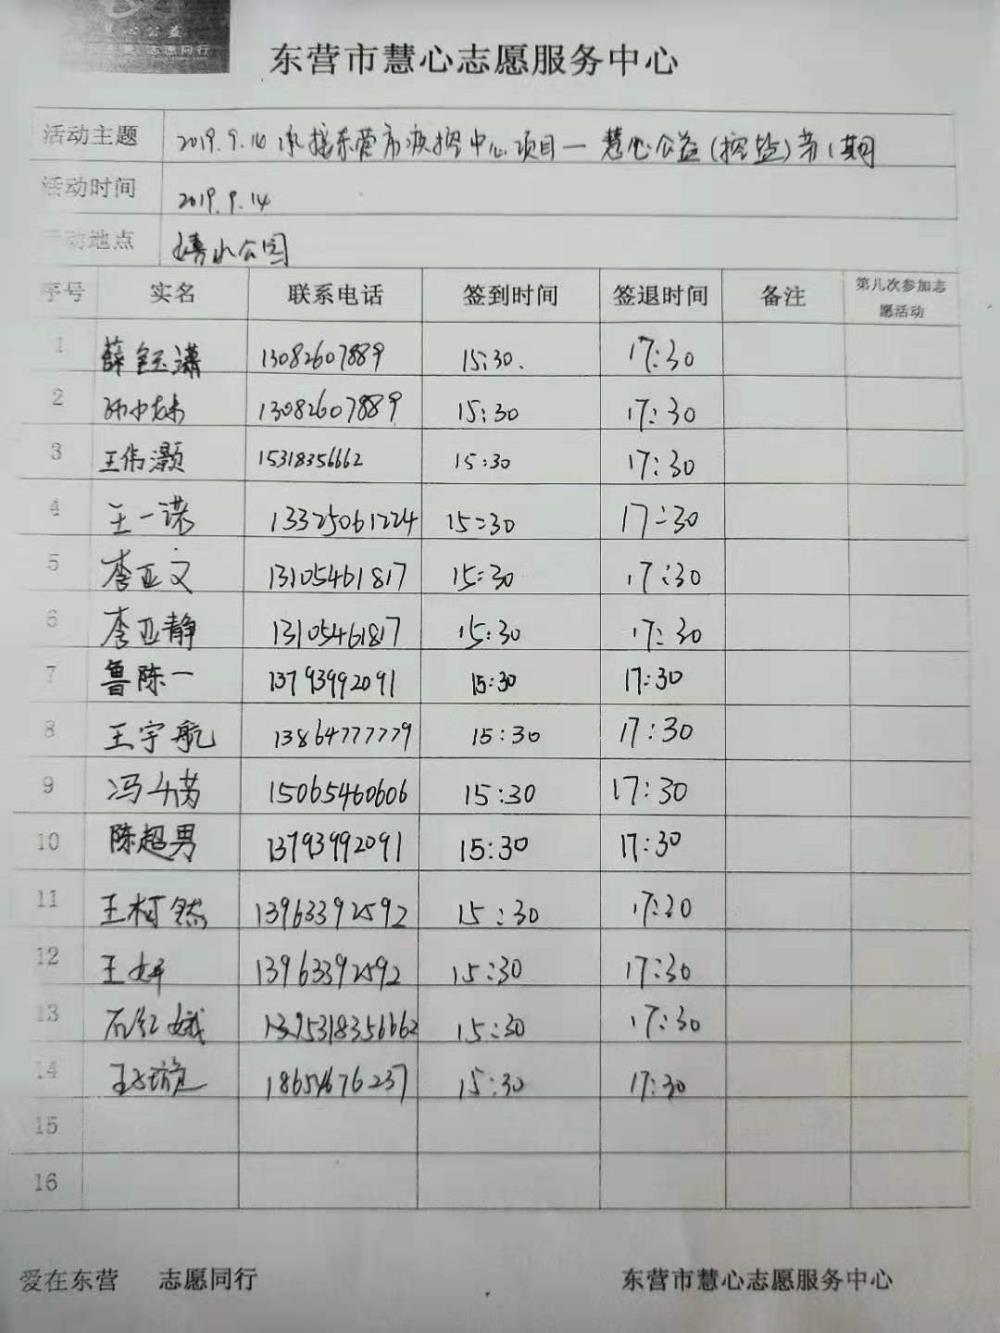 慧心公益
志愿同行
东营市慧心志愿服务中心
活动主题 2019.9.14 承接东营市疾控中心项目一 慧心公益(控盐)第1期
活动时间 2019.9.14
活动地点 清水公园
序号 实名 联系电话 签到时间 签退时间 备注 第几次参加志愿活动
1 薛钰潇 13082607889 15:30. 17:30
2 13082607889 15:30 17:30
3 王伟灏 15318356662 15:30 17:30
4 王一诺 13325061224 15:30 17:30
5 李亚文 13105461817 15:30 17:30
6 李亚静 13105461817 15:30 17:30
7 鲁陈一 13793992091 15:30 17:30
8 王宇航 13864777779 15:30 17:30
9 冯 15065460606 15:30 17:30
10 陈超男 13793992091 15:30 17:30
11 王柯然 13963392592 15:30 17:30
12 王妍 13963392592 15:30 17:30
13 石红娥 15318356662 15:30 17:30
14 王 15:30 17:30
15
16
爱在东营 志愿同行 东营市慧心志愿服务中心